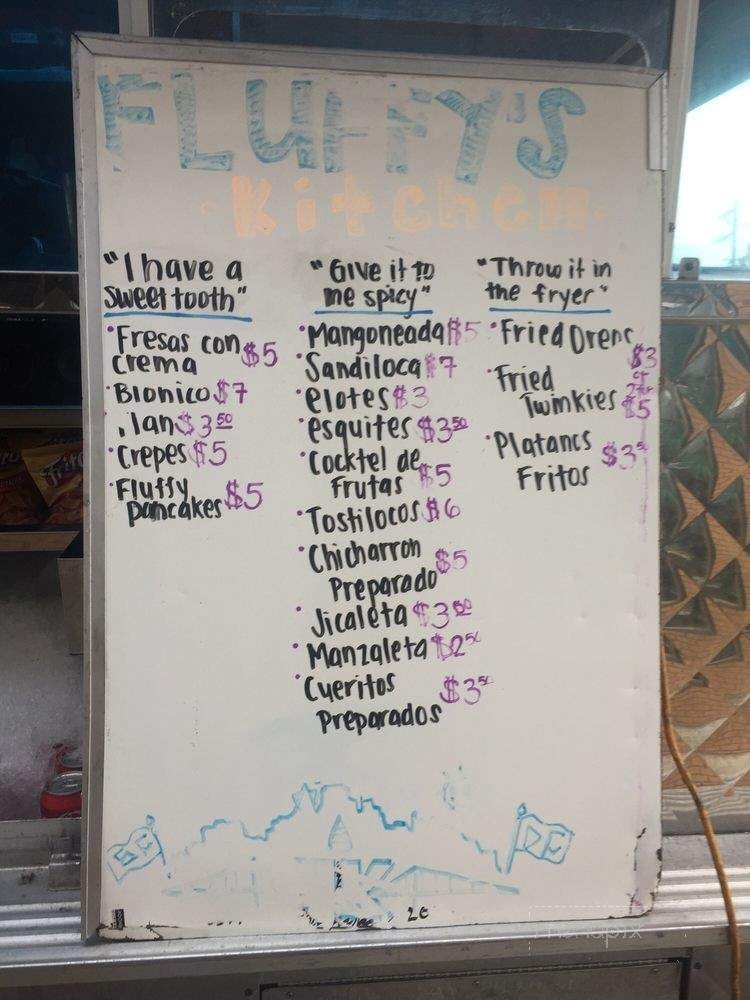 FLUFFY'S
Kitchen
"I have a
sweet tooth"
Fresas con
crema $5
Bionico $7
lan $3 50
Crepes $5
Fluffy
pancakes $5
"Give it to
me spicy"
Mangoneada $5
Sandiloca $7
elotes $3
esquites $3 50
Cocktel de
Frutas $5
Tostilocos $6
Chicharron
Preparado $5
Jicaleta $3 50
Manzaleta $2 50
Cueritos
Preparados $3 50
"Throw it in
the fryer"
Fried Oreos
$3
Fried
Twinkies $5
Platanos
Fritos $3 5
DF